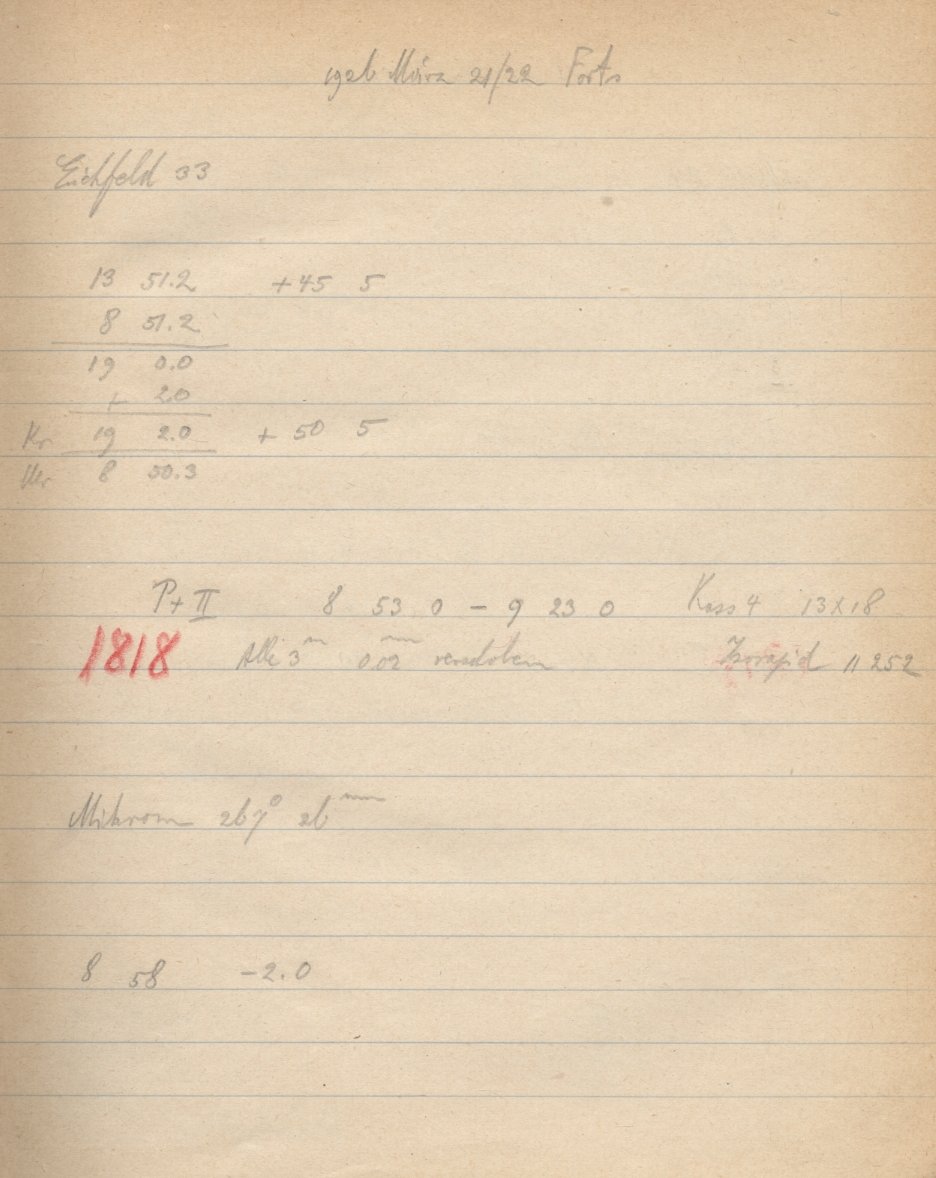 1926 März 21/22 Forts
Eichfeld 33
13 51.2 +45 5
8 51.2
19 0.0
+ 2.0
Kr 19 2.0 + 50 5
Ukr 8 50.3
P + II 8 53 0 – 9 23 0 Kass 4 13X18
1818 Alle 3ᵐ 0.02ᵐᵐ verschoben Isorapid 11252
Mikrom 267° 26ᵐᵐ
8 58 –2.0